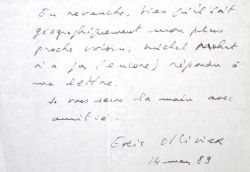 En revanche, bien qu'il soit
géographiquement mon plus
proche voisin, Michel Mohrt
n'a pas (encore) répondu à
ma lettre.
Je vous serre la main avec
amitié.
Eric Ollivier
14 mars 89